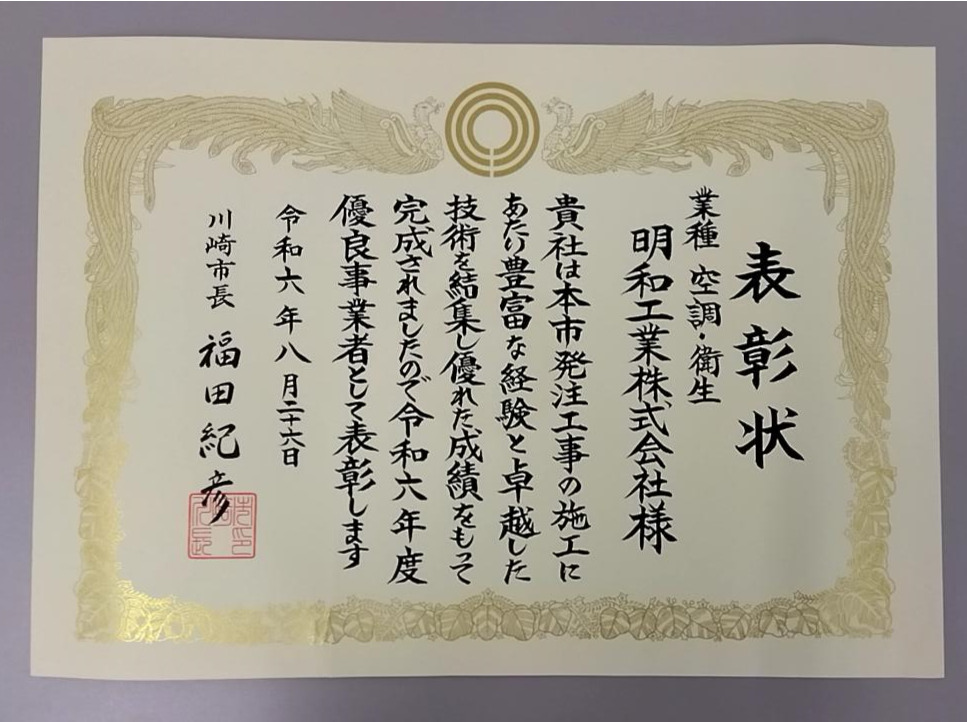 表彰状
業種 空調・衛生
明和工業株式会社様
貴社は本市発注工事の施工に
あたり豊富な経験と卓越した
技術を結集し優れた成績をもって
完成されましたので令和六年度
優良事業者として表彰します
令和六年八月二十六日
川崎市長 福田紀彦